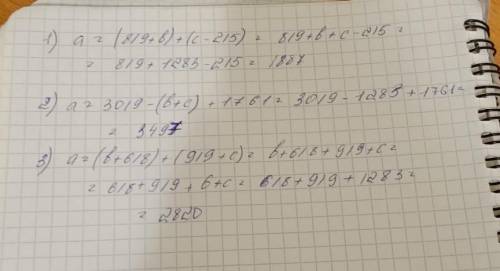 1) a = (819+b)+(c-215) = 819+b+c-215=
= 819+1283-215=1887
2) a= 3019-(b+c)+1761= 3019-1283+1761=
= 3497
3) a=(b+618)+(919+c)= b+618+919+c=
= 618+919+b+c= 618+919+1283=
= 2820